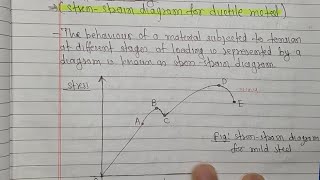 (stress-strain diagram for ductile metal)
- The behaviour of a material subjected to tension
at different stages of loading is represented by a
diagram is known as stress-strain diagram.
stress
A
B
C
D
E
Fig: stress-strain diagram
for mild steel